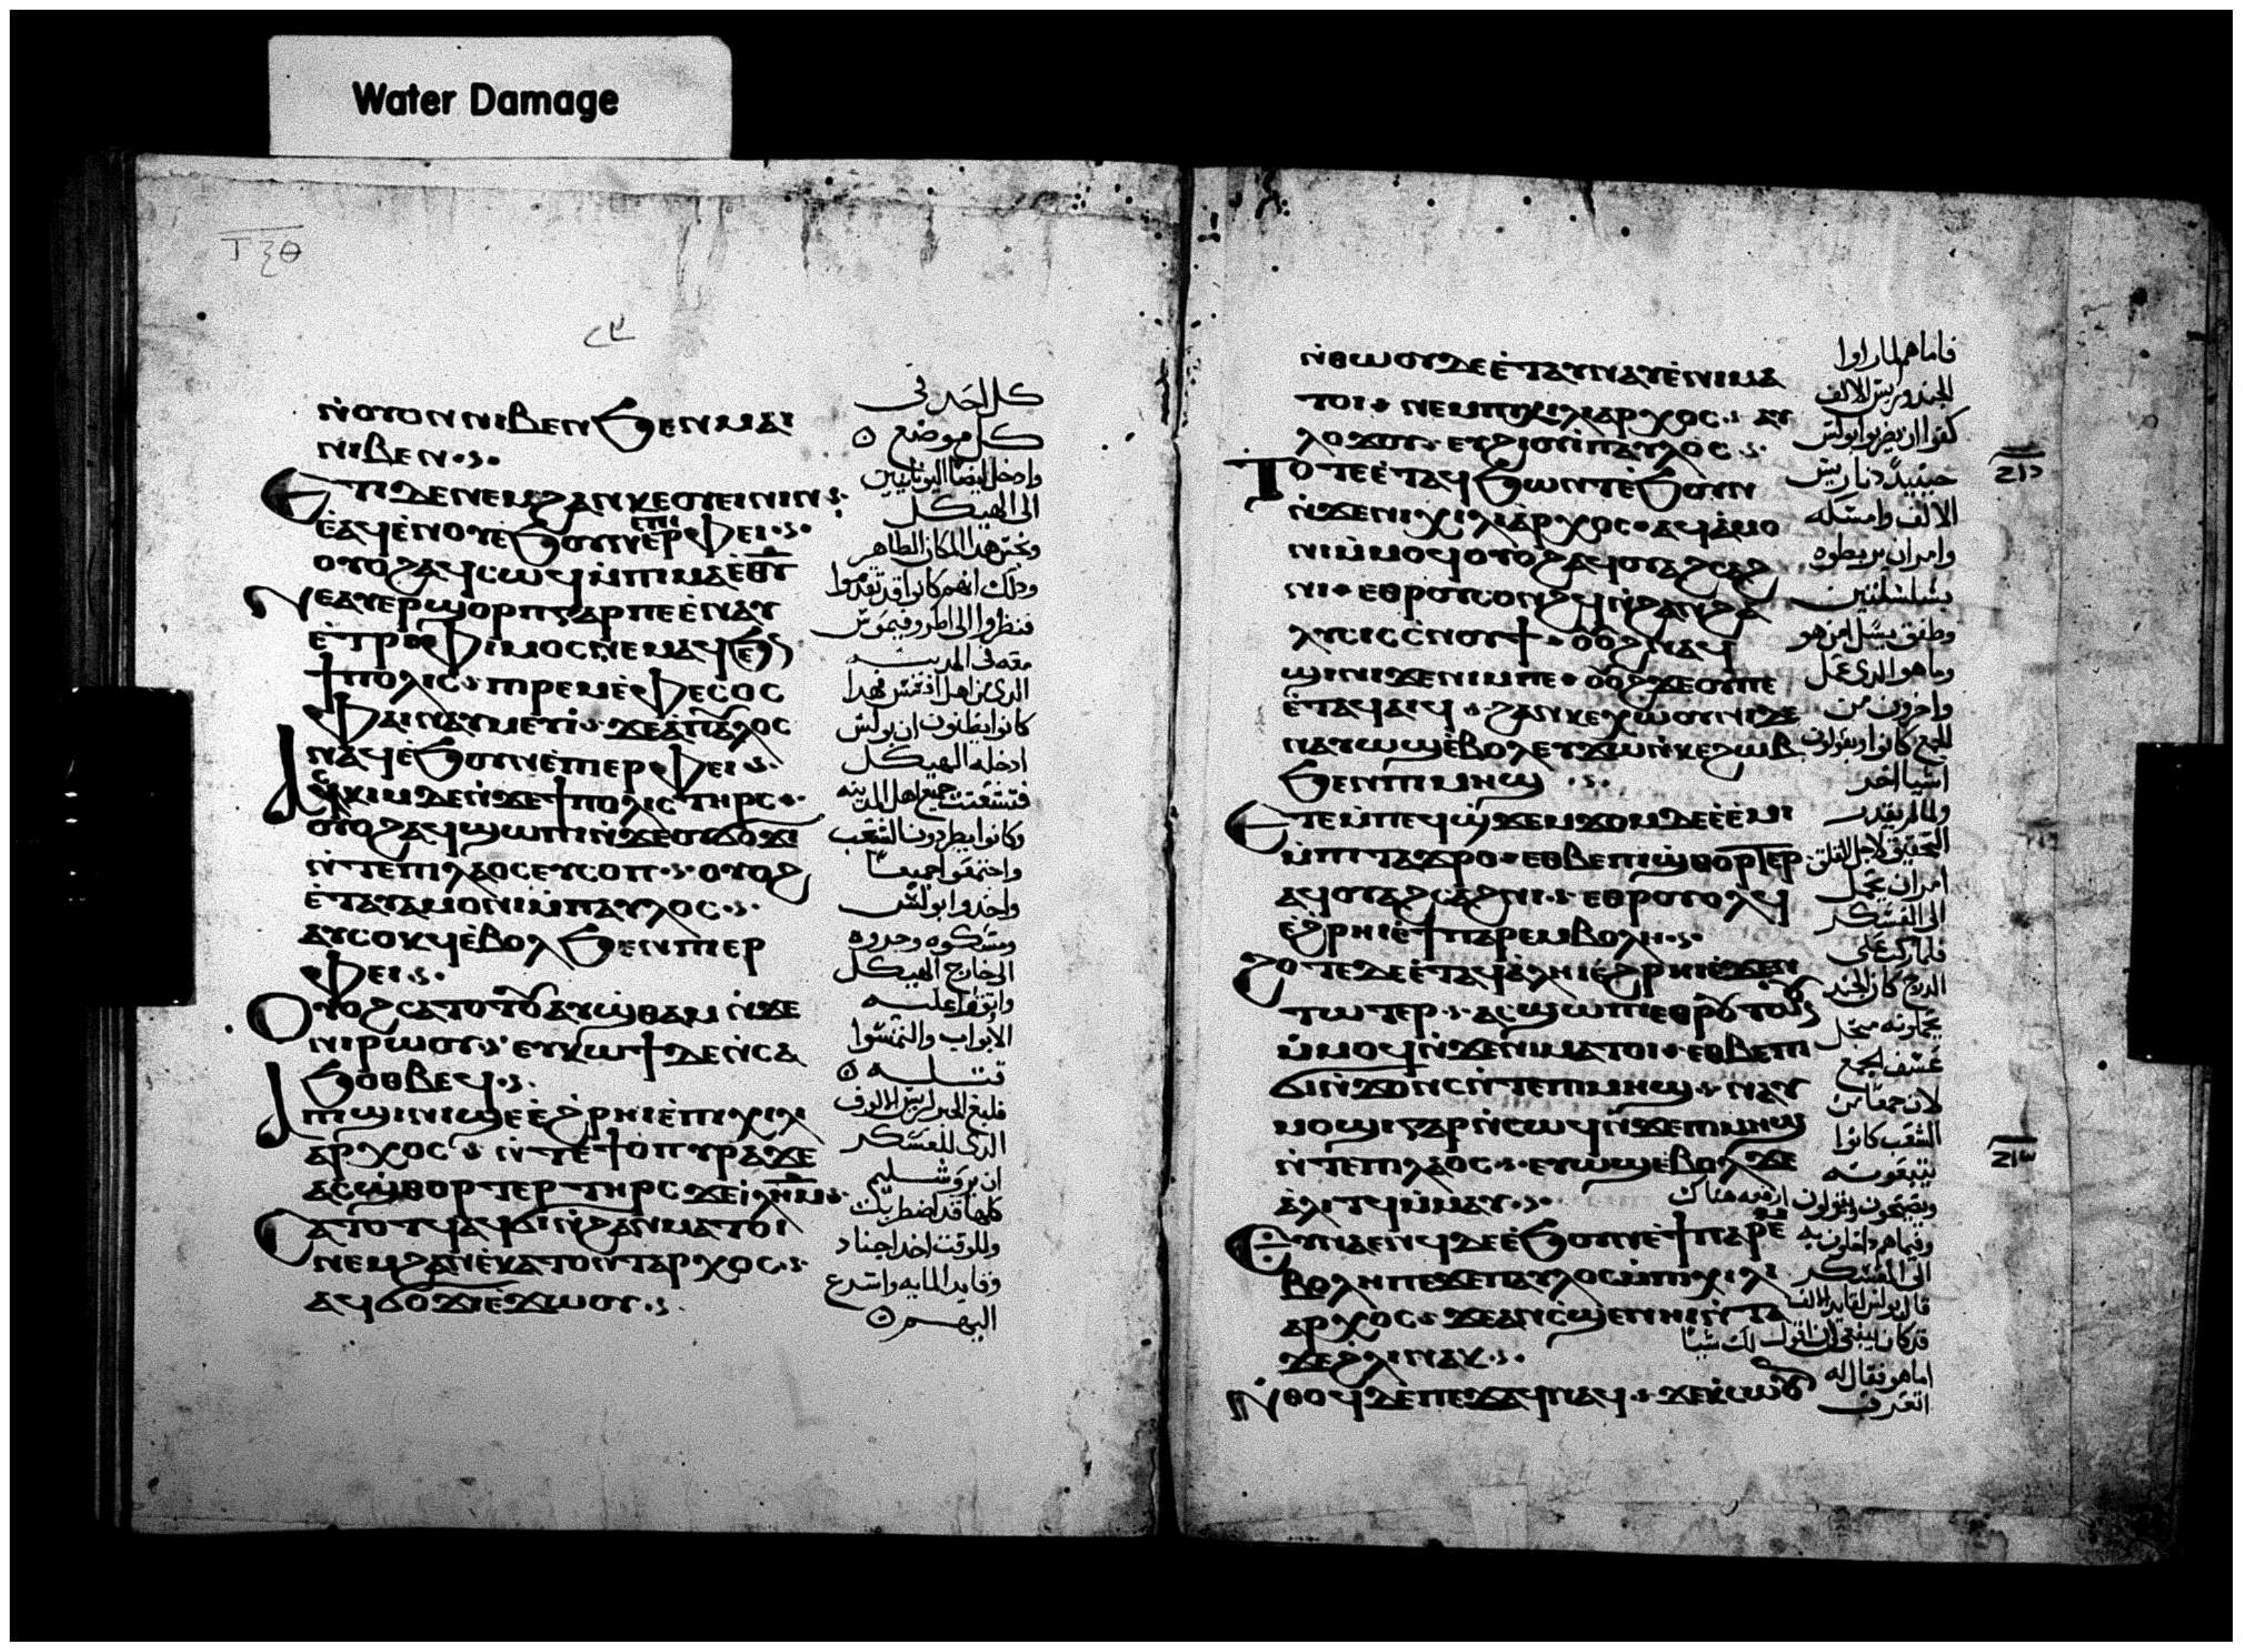 Water Damage
ⲧⲝⲑ
ⲛ̀ⲟⲩⲟⲛ ⲛⲓⲃⲉⲛ ϧⲉⲛ ⲙⲁⲓ
ⲛⲓⲃⲉⲛ
Ⲉⲧⲓ ⲇⲉ ⲛⲉⲙ ϩⲁⲛⲕⲉⲟⲩⲉⲓⲛⲓⲛ
ⲉ̀ⲁϥⲉ̀ⲛⲟⲩ ⲉ̀ϧⲟⲩⲛ ⲉ̀ⲡⲓⲉⲣⲫⲉⲓ
ⲟⲩⲟϩ ⲁϥⲥⲱϥ ⲙ̀ⲡⲓⲙⲁ ⲉ̀ⲑⲩ
Ⲛⲉⲁⲩⲉⲣϣⲟⲣⲡ ⲅⲁⲣ ⲡⲉ ⲉ̀ⲛⲁⲩ
ⲉ̀ⲧⲣⲟⲫⲓⲙⲟⲥ ⲛⲉⲙⲁϥ ϧⲉⲛ
ϯⲡⲟⲗⲓⲥ ⲡⲓⲣⲉⲙⲉ̀ⲫⲉⲥⲟⲥ
ⲫⲁⲓ ⲛⲁⲩⲙⲉⲩⲓ̀ ϫⲉ ⲁ̀ ⲡⲁⲩⲗⲟⲥ
ⲛⲁϥ ⲉ̀ϧⲟⲩⲛ ⲉ̀ⲡⲓⲉⲣⲫⲉⲓ
Ⲁⲥⲕⲓⲙ ⲇⲉ ⲛ̀ϫⲉ ϯⲡⲟⲗⲓⲥ ⲧⲏⲣⲥ
ⲟⲩⲟϩ ⲁϥϣⲱⲡⲓ ⲛ̀ϫⲉ ⲟⲩϭⲟϫⲓ
ⲛ̀ⲧⲉ ⲡⲓⲗⲁⲟⲥ ⲉⲩⲥⲟⲡ ⲟⲩⲟϩ
ⲉ̀ⲧⲁⲩⲁⲙⲟⲛⲓ ⲙ̀ⲡⲁⲩⲗⲟⲥ
ⲁⲩⲥⲟⲕϥ ⲉ̀ⲃⲟⲗ ϧⲉⲛ ⲡⲓⲉⲣ
ⲫⲉⲓ
Ⲟⲩⲟϩ ⲥⲁⲧⲟⲧⲟⲩ ⲁⲩϣⲑⲁⲙ ⲛ̀ϫⲉ
ⲛⲓⲣⲱⲟⲩ ⲉⲩⲕⲱϯ ⲇⲉ ⲛ̀ⲥⲁ
ϧⲟⲑⲃⲉϥ
Ⲁ ⲡϣⲓⲛⲓ ϣⲉ ⲉ̀ϩⲣⲏⲓ ⲉ̀ⲡⲓⲭⲓⲗⲓ
ⲁⲣⲭⲟⲥ ⲛ̀ⲧⲉ ϯⲥⲡⲩⲣⲁ ϫⲉ
ⲁⲥϣⲑⲟⲣⲧⲉⲣ ⲧⲏⲣⲥ ϫⲉ ⲓ̀ⲗⲏⲙ
Ⲥⲁⲧⲟⲧϥ ⲁϥϭⲓ ⲛ̀ϩⲁⲛⲙⲁⲧⲟⲓ
ⲛⲉⲙ ϩⲁⲛⲉ̀ⲕⲁⲧⲟⲛⲧⲁⲣⲭⲟⲥ
ⲁϥϭⲟϫⲓ ⲉ̀ϫⲱⲟⲩ
كل احد في
كل موضع
وادخل ايضا اليونانيين
الى الهيكل
ونجس هذا المكان الطاهر
وذلك انهم كانوا قد تقدموا
فنظروا الى اطروفيموس
معه في المدينه
الذي من اهل افسس فهذا
كانوا يظنون ان بولس
ادخله الهيكل
فتشتت جميع اهل المدينه
وكانوا يطردون الشعب
واجتمعوا جميعا
واخذوا بولس
ومسكوه وجروه
الى خارج الهيكل
الابواب والتمسوا
قتله
فبلغ الخبر لريس الالوف
الذي للعسكر
ان يروشليم
كلها قد اضطربت
وللوقت اخذ اجنادا
وقايد المايه واسرع
اليهم
ⲛ̀ⲑⲱⲟⲩ ⲇⲉ ⲉ̀ⲧⲁⲩⲛⲁⲩ ⲉ̀ⲛⲓⲙⲁ
ⲧⲟⲓ ⲛⲉⲙ ⲡⲓⲭⲓⲗⲓⲁⲣⲭⲟⲥ ⲁⲩ
ⲗⲟϫⲟⲩ ⲉⲩϩⲓⲟⲩⲓ̀ ⲉ̀ⲡⲁⲩⲗⲟⲥ
Ⲧⲟⲧⲉ ⲉ̀ⲧⲁϥϧⲱⲛⲧ ⲉ̀ϧⲟⲩⲛ
ⲛ̀ϫⲉ ⲡⲓⲭⲓⲗⲓⲁⲣⲭⲟⲥ ⲁϥⲁ̀ⲙⲟ
ⲛⲓ ⲙ̀ⲙⲟϥ ⲟⲩⲟϩ ⲁϥⲟⲩⲁϩⲥⲁϩ
ⲛⲓ ⲉⲑⲣⲟⲩⲥⲟⲛϩϥ ⲛ̀ϩⲁⲛϩⲁ
ⲗⲩⲥⲓⲥ ⲥ̀ⲛⲟⲩϯ ⲟⲩⲟϩ ⲛⲁϥ
ϣⲓⲛⲓ ϫⲉ ⲛⲓⲙ ⲡⲉ ⲟⲩⲟϩ ϫⲉ ⲟⲩ ⲡⲉ
ⲉ̀ⲧⲁϥⲁⲓϥ ϩⲁⲛⲕⲉⲭⲱⲟⲩⲛⲓ ⲇⲉ
ⲛⲁⲩⲱϣ ⲉ̀ⲃⲟⲗ ⲉⲩϫⲱ ⲛ̀ⲕⲉϩⲱⲃ
ϧⲉⲛ ⲡⲓⲙⲏϣ
Ⲉⲧⲉⲙⲡⲉϥϣϫⲉⲙϫⲟⲙ ⲇⲉ ⲉ̀ⲉ̀ⲙⲓ
ⲙ̀ⲡⲓⲧⲁϫⲣⲟ ⲉⲑⲃⲉ ⲡⲓϣⲑⲟⲣⲧⲉⲣ
ⲁϥⲟⲩⲁϩⲥⲁϩⲛⲓ ⲉⲑⲣⲟⲩⲟⲗϥ
ⲉ̀ϩⲣⲏⲓ ⲉ̀ϯⲡⲁⲣⲉⲙⲃⲟⲗⲏ
Ϩⲟⲧⲉ ⲇⲉ ⲉ̀ⲧⲁϥⲁ̀ⲗⲏⲓ ⲉ̀ϩⲣⲏⲓ ⲉ̀ϫⲉⲛ
ⲧⲱⲧⲉⲣ ⲁⲥϣⲱⲡⲓ ⲉⲑⲣⲟⲩⲧⲱⲟⲩⲛ
ⲙ̀ⲙⲟϥ ⲛ̀ϫⲉ ⲛⲓⲙⲁⲧⲟⲓ ⲉⲑⲃⲉ ⲡⲓ
ϭⲓⲛ̀ϫⲟⲛⲥ ⲛ̀ⲧⲉ ⲡⲓⲙⲏϣ ⲛⲁⲩ
ⲙⲟϣⲓ ⲅⲁⲣ ⲛ̀ⲥⲱϥ ⲛ̀ϫⲉ ⲡⲓⲙⲏϣ
ⲛ̀ⲧⲉ ⲡⲓⲗⲁⲟⲥ ⲉⲩⲱϣ ⲉ̀ⲃⲟⲗ ϫⲉ
ⲁ̀ⲗⲓⲧϥ ⲙ̀ⲙⲁⲩ
Ⲉⲩⲛⲁⲉⲛϥ ⲇⲉ ⲉ̀ϧⲟⲩⲛ ⲉ̀ϯⲡⲁⲣⲉⲙ
ⲃⲟⲗⲏ ⲡⲉϫⲉ ⲡⲁⲩⲗⲟⲥ ⲙ̀ⲡⲓⲭⲓⲗⲓ
ⲁⲣⲭⲟⲥ ϫⲉ ⲁⲛ ⲥ̀ϣⲉ ⲛⲏⲓ ⲛ̀ⲧⲁ
ϫⲉ ϩⲗⲓ ⲛⲁⲕ
Ⲛ̀ⲑⲟϥ ⲇⲉ ⲡⲉϫⲁϥ ⲛⲁϥ ϫⲉ ⲕ̀ⲥⲱⲟⲩⲛ
فاما هم لما راوا
الجند وريس الالف
كفوا ان يضربوا بولس
حينيذ دنا ريس
الالف وامسكه
وامر ان يربطوه
بسلسلتين
وطفق يسل من هو
وما هو الذي عمل
واخرون من
الجمع كانوا يقولون
اشيا اخر
ولما لم يقدر
التحقيق لاجل القلق
امر ان يحمل
الى العسكر
فلما ركب على
الدرج كان الجند
يحملونه من اجل
عسف الجمع
لان جمعا من
الشعب كانوا
يتبعونه
ويصيحون ويقولون ارفعه هناك
وفيما هم داخلون به
الى العسكر
قال بولس لقايد الالف
قد كان ينبغي ان اقول لك شيا
اما هو فقال له
اتعرف